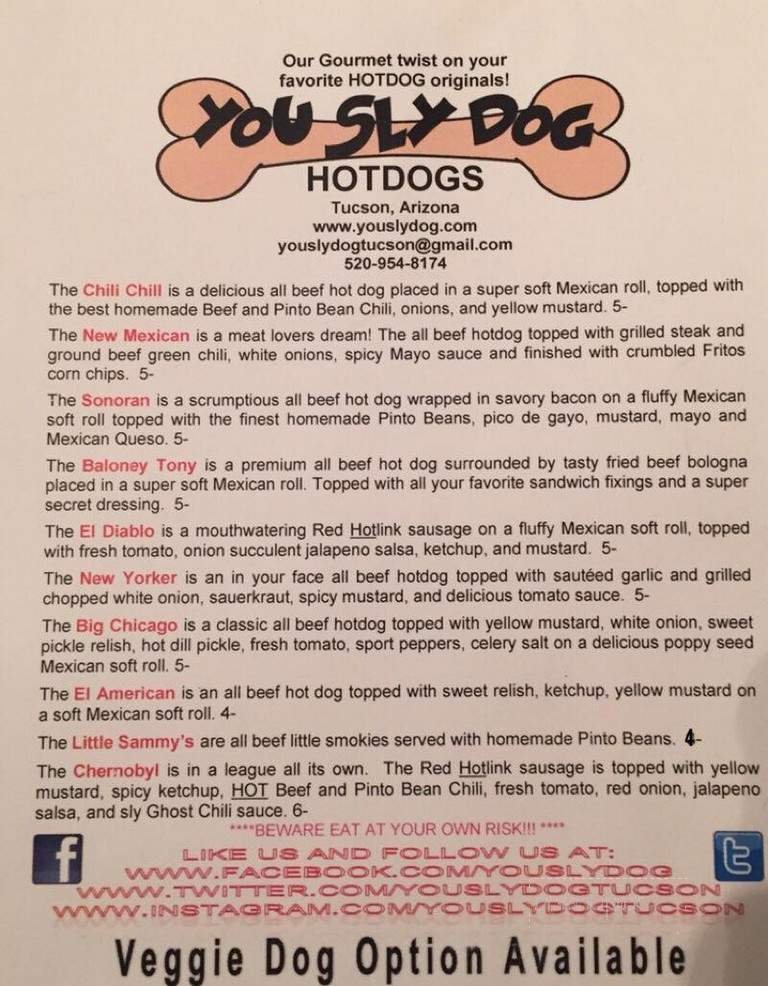 Our Gourmet twist on your
favorite HOTDOG originals!
YOU SLY DOG
HOTDOGS
Tucson, Arizona
www.youslydog.com
youslydogtucson@gmail.com
520-954-8174
The Chili Chill is a delicious all beef hot dog placed in a super soft Mexican roll, topped with
the best homemade Beef and Pinto Bean Chili, onions, and yellow mustard. 5-
The New Mexican is a meat lovers dream! The all beef hotdog topped with grilled steak and
ground beef green chili, white onions, spicy Mayo sauce and finished with crumbled Fritos
corn chips. 5-
The Sonoran is a scrumptious all beef hot dog wrapped in savory bacon on a fluffy Mexican
soft roll topped with the finest homemade Pinto Beans, pico de gayo, mustard, mayo and
Mexican Queso. 5-
The Baloney Tony is a premium all beef hot dog surrounded by tasty fried beef bologna
placed in a super soft Mexican roll. Topped with all your favorite sandwich fixings and a super
secret dressing. 5-
The El Diablo is a mouthwatering Red Hotlink sausage on a fluffy Mexican soft roll, topped
with fresh tomato, onion succulent jalapeno salsa, ketchup, and mustard. 5-
The New Yorker is an in your face all beef hotdog topped with sautéed garlic and grilled
chopped white onion, sauerkraut, spicy mustard, and delicious tomato sauce. 5-
The Big Chicago is a classic all beef hotdog topped with yellow mustard, white onion, sweet
pickle relish, hot dill pickle, fresh tomato, sport peppers, celery salt on a delicious poppy seed
Mexican soft roll. 5-
The El American is an all beef hot dog topped with sweet relish, ketchup, yellow mustard on
a soft Mexican soft roll. 4-
The Little Sammy's are all beef little smokies served with homemade Pinto Beans. 4-
The Chernobyl is in a league all its own. The Red Hotlink sausage is topped with yellow
mustard, spicy ketchup, HOT Beef and Pinto Bean Chili, fresh tomato, red onion, jalapeno
salsa, and sly Ghost Chili sauce. 6-
****BEWARE EAT AT YOUR OWN RISK!!! ****
f
t
LIKE US AND FOLLOW US AT:
WWW.FACEBOOK.COM/YOUSLYDOG
WWW.TWITTER.COM/YOUSLYDOGTUCSON
WWW.INSTAGRAM.COM/YOUSLYDOGTUCSON
Veggie Dog Option Available